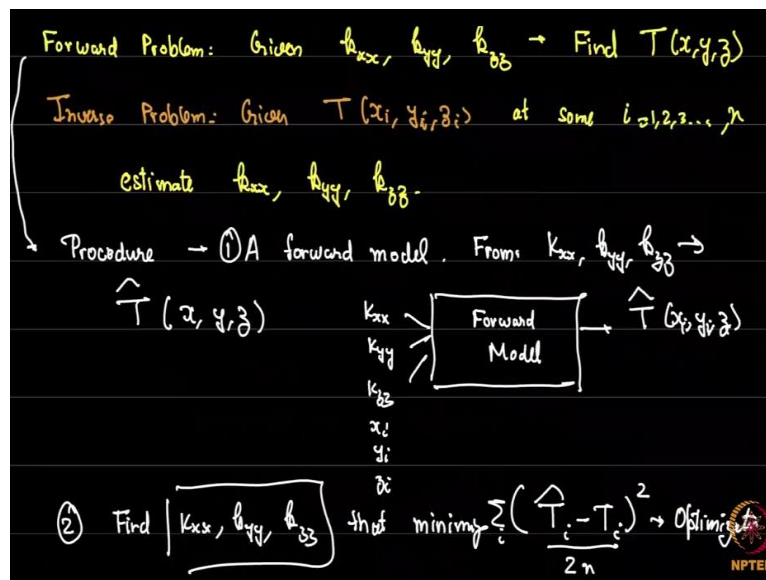 Forward Problem: Given kxx, kyy, kzz → Find T(x,y,z)
Inverse Problem: Given T(xi, yi, zi) at some i=1,2,3..., n
estimate kxx, kyy, kzz.
Procedure → ① A forward model. From Kxx, kyy, kzz →
T̂(x, y, z)
Kxx
Kyy
Kzz
xi
yi
zi
Forward
Model
T̂(xi, yi, z)
② Find Kxx, kyy, kzz that minimiz Σi (T̂i - Ti)² / 2n → Optimizat
NPTEL